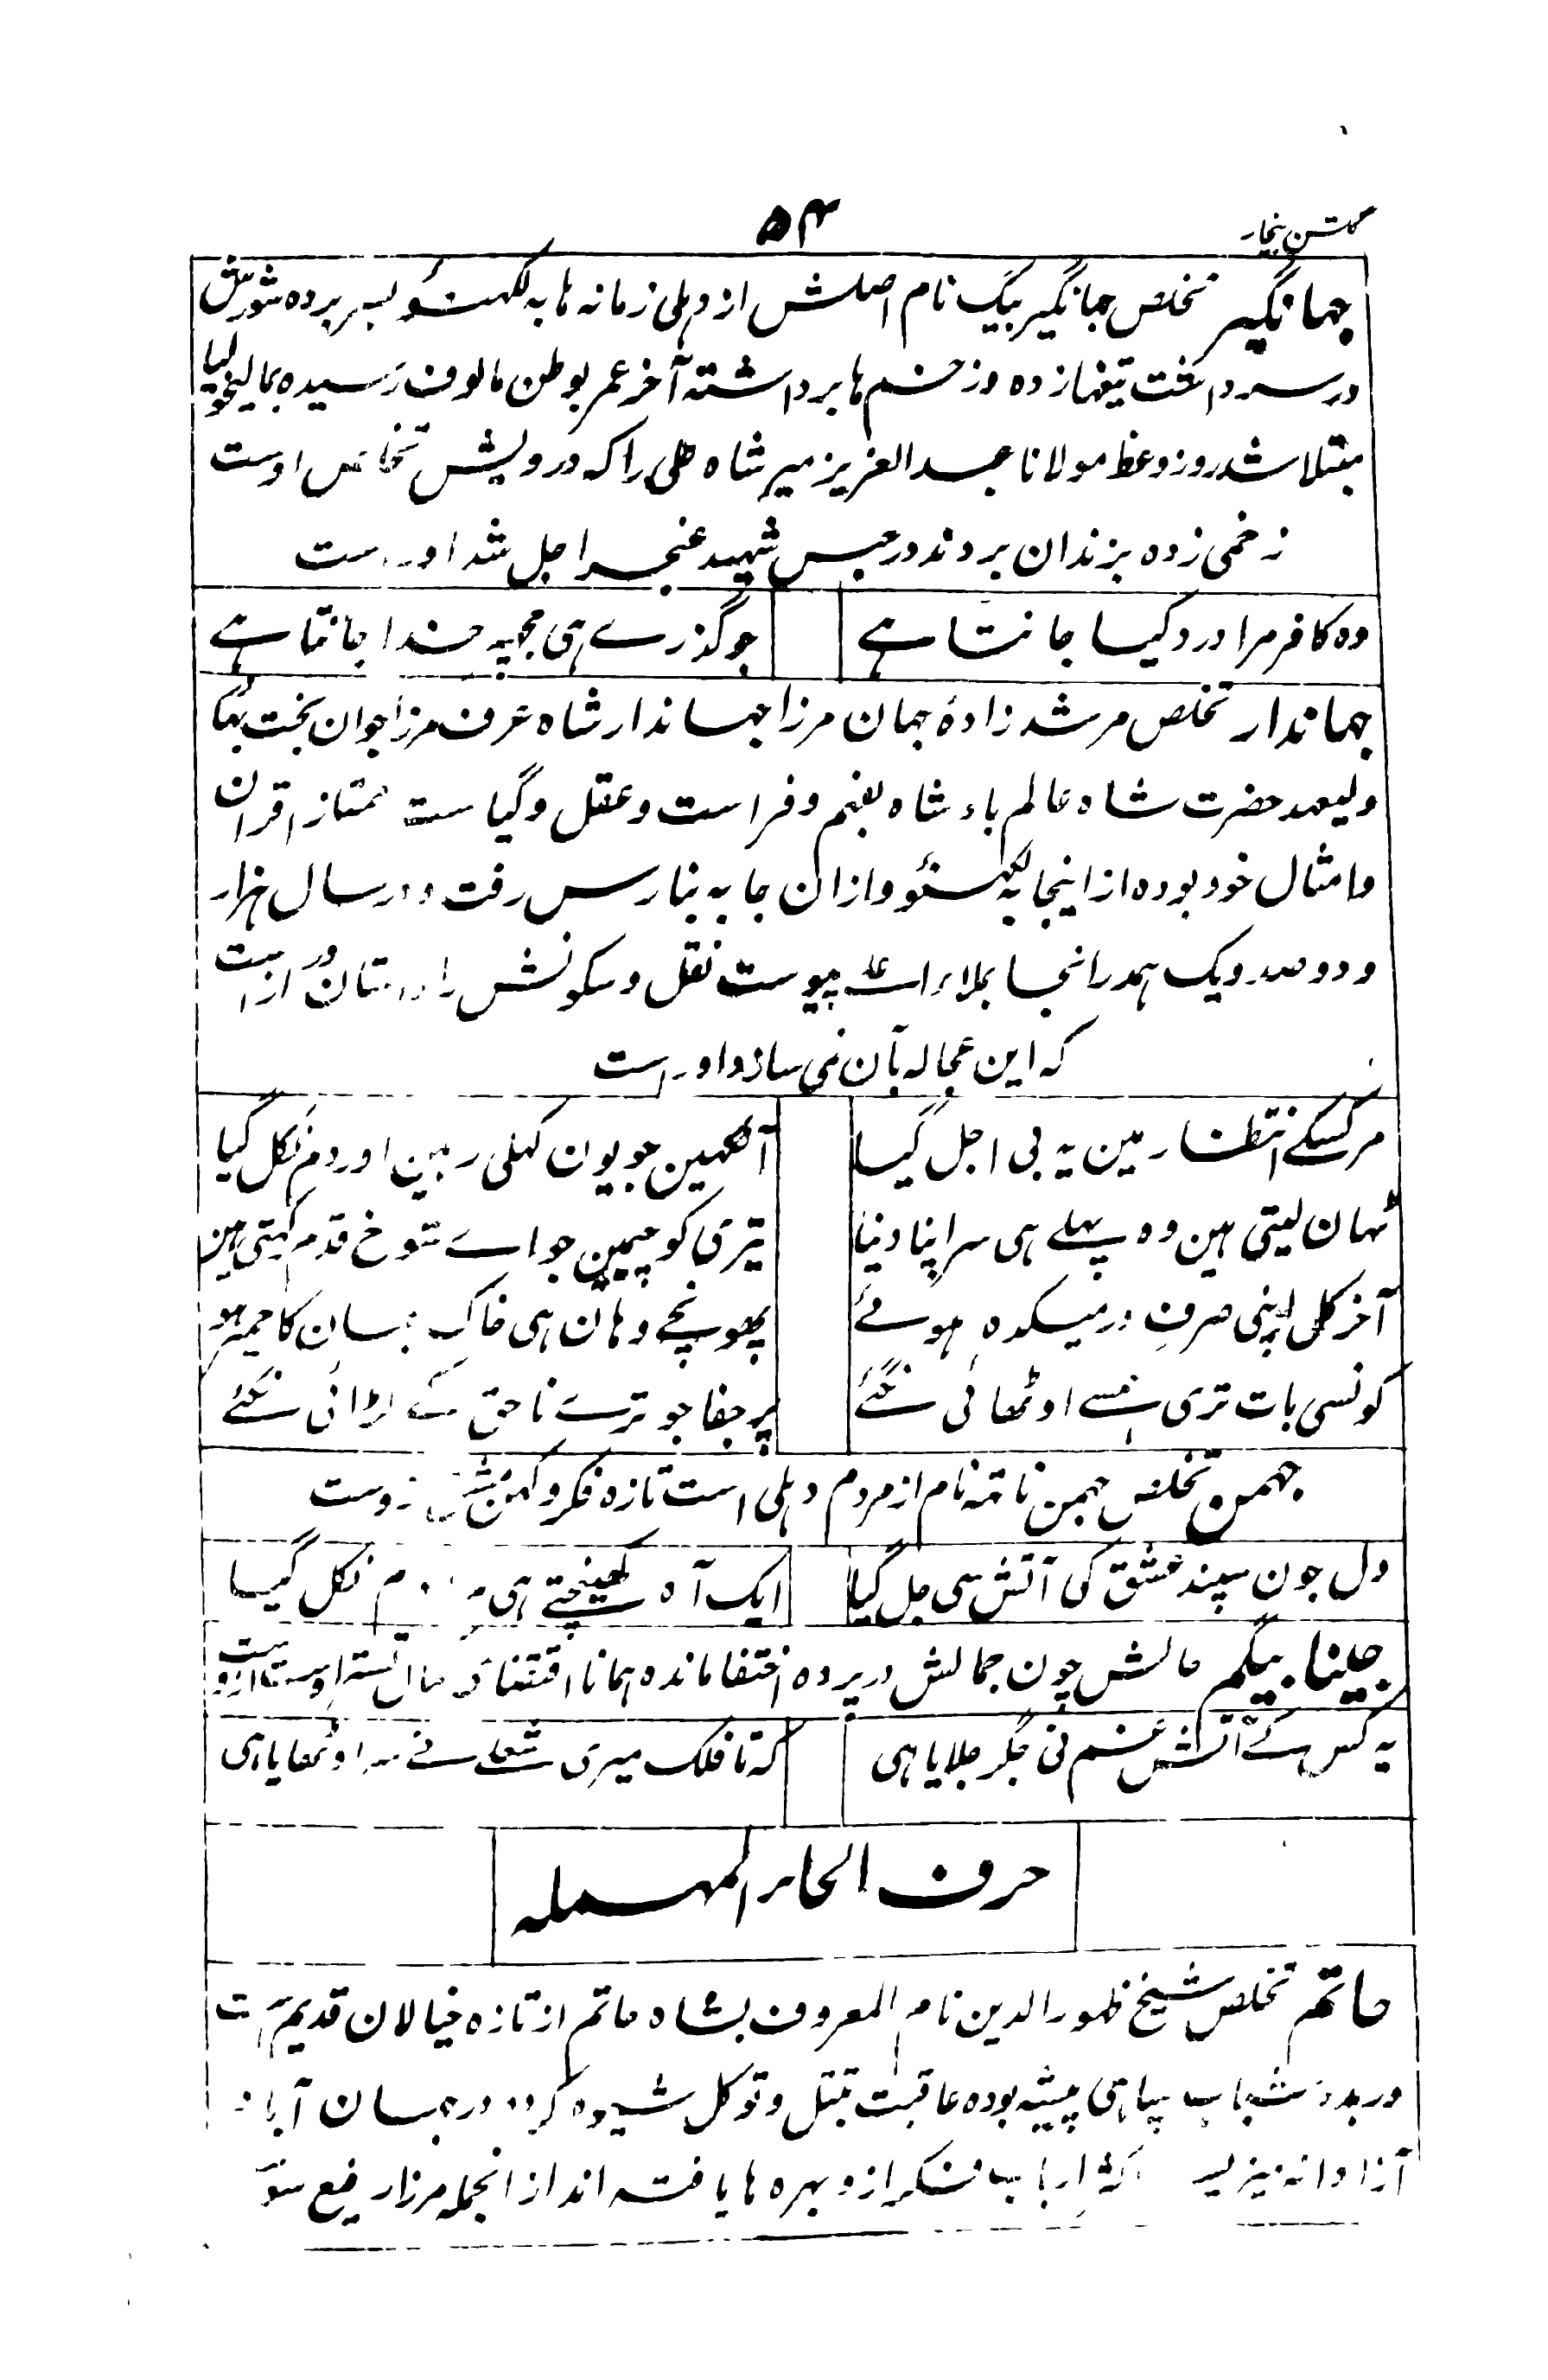 گلشن بیخار
۵۴
جہانگیر تخلص جہانگیر بیگ نام اصلش از دہلی زمانہ ہا بہ لکہنؤ بسر بردہ شورشی
در سر داشت تیغہا زدہ و زخم ہا برداشتہ آخر عمر بوطن مالوف رسیدہ بمالیخولیا
مبتلا شد روز وعظ مولانا عبد العزیز میر شاہ علی را کہ درویش تخلص اوست
زخمی زدہ بزندان بردند در حبس شہید خنجر اجل شد اوراست
وہ کافر مرا درد کیا جانتا ہے
جو گذرے ہی مجہپہ خدا جانتا ہے
جہاندار تخلص مرشد زادۂ جہان مرزا جہاندار شاہ عرف مرزا جوان بخت بہادر
ولیعہد حضرت شاہ عالم بادشاہ بفہم و فراست و عقل و کیاست ممتاز اقران
و امثال خود بودہ از اینجا بہ لکہنؤ و ازان جا بہ بنارس رفت و در سال ہزار
و دو صد و یک ہمدرانجا بملاء اعلے پیوست نقل و سکونتش را داستان دراز است
کہ این عجالہ بآن نمی سازد اوراست
مر کسکے انتظار مین یہ بی اجل گیا
آنکہین جو یون کہلی رہین اور دم نکل گیا
ٹہان لیتی ہین وہ پہلے ہی سر اپنا دینا
تیری کوچیمین جو اے شوخ قدم رکہتی ہین
آخر گل اپنی صرف در میکدہ ہوئے
پہونچے وہان ہی خاک جہان کا خمیر ہو
کونسی بات تری ہمسے اوٹھائی نگئے
پر جفا جو ترے ناحق کے لڑائی نگئے
جہمن تخلص جہمن ناتہہ نام از مردم دہلی است تازہ فکر و کہن مشق زوست
دل جون سپند عشق کی آتش سی جل گیا
ایک آہ کھینچتے ہی دم نکل گیا
جینا بیگم حالش چون جمالش در پردہ اختفا ماندہ ہمانا اقتضای
یہ کس کے آتش غم نی جگر جلایا ہی
کہ تا فلک میری شعلے نے سر اوٹھایا ہی
حرف الحاء المہملہ
حاتم تخلص شیخ ظہور الدین نام المعروف بشاہ حاتم از تازہ خیالان قدیم است
در بدو شباب سپاہی پیشہ بودہ عاقبت تبتل و توکل شیوہ کردہ در جہان آباد
آزادانہ میزیست اکثر ارباب فکر ازو بہرہ ہا یافتہ اند از انجملہ مرزا رفیع سودا